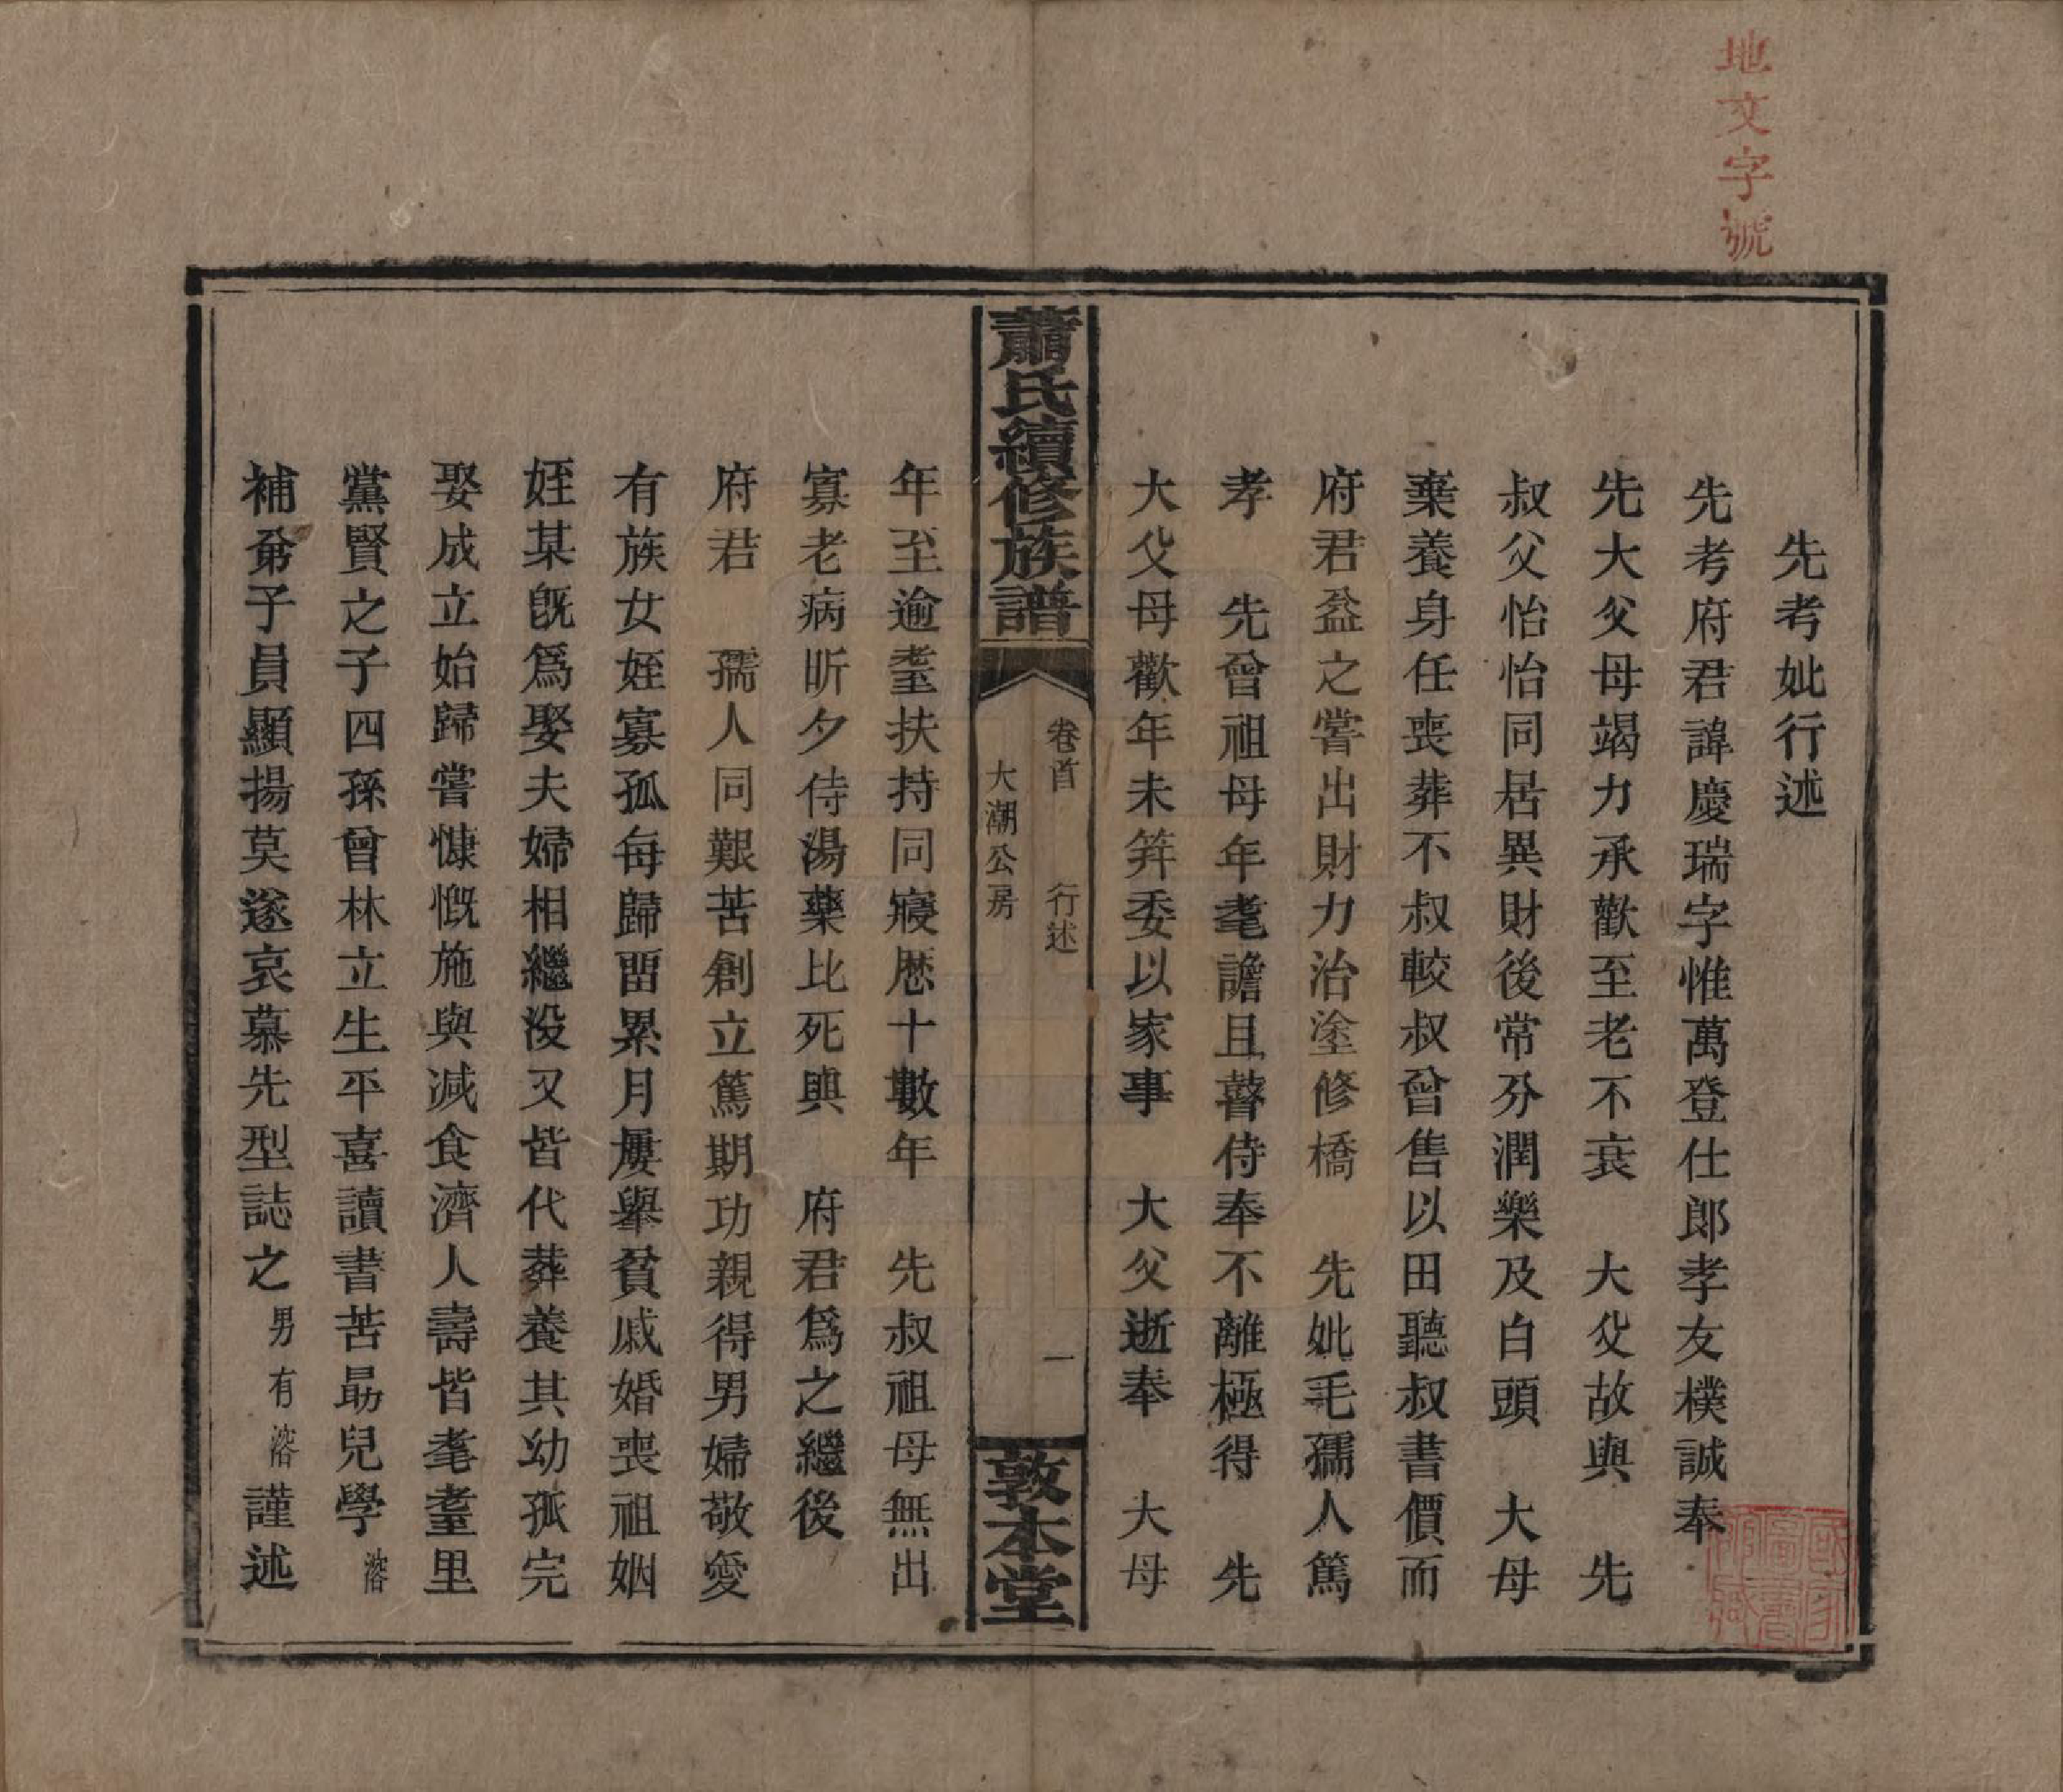 地文字號
先考妣行述
先考府君諱慶瑞字惟萬登仕郎孝友樸誠奉
先大父母竭力承歡至老不衰　大父故與　先
叔父怡怡同居異財後常分潤樂及白頭　大母
棄養身任喪葬不叔較叔曾售以田聽叔書價而
府君益之嘗出財力治塗修橋　先妣毛孺人篤
孝　先曾祖母年耄譫且瞽侍奉不離極得　先
大父母歡年未筓委以家事　大父逝奉　大母
蕭氏續修族譜
卷首　行述　一
大潮公房
敦本堂
年至逾耋扶持同寢歷十數年　先叔祖母無出
寡老病昕夕侍湯藥比死與　府君為之繼後
府君　孺人同艱苦創立篤期功親得男婦敬愛
有族女姪寡孤每歸畱累月屢舉貧戚婚喪祖姻
姪某既為娶夫婦相繼没又皆代葬養其幼孤完
娶成立始歸嘗慷慨施與減食濟人壽皆耄耋里
黨賢之子四孫曾林立生平喜讀書苦勗兒學溶
補弟子員顯揚莫遂哀慕先型誌之男有溶謹述
國家圖書館藏